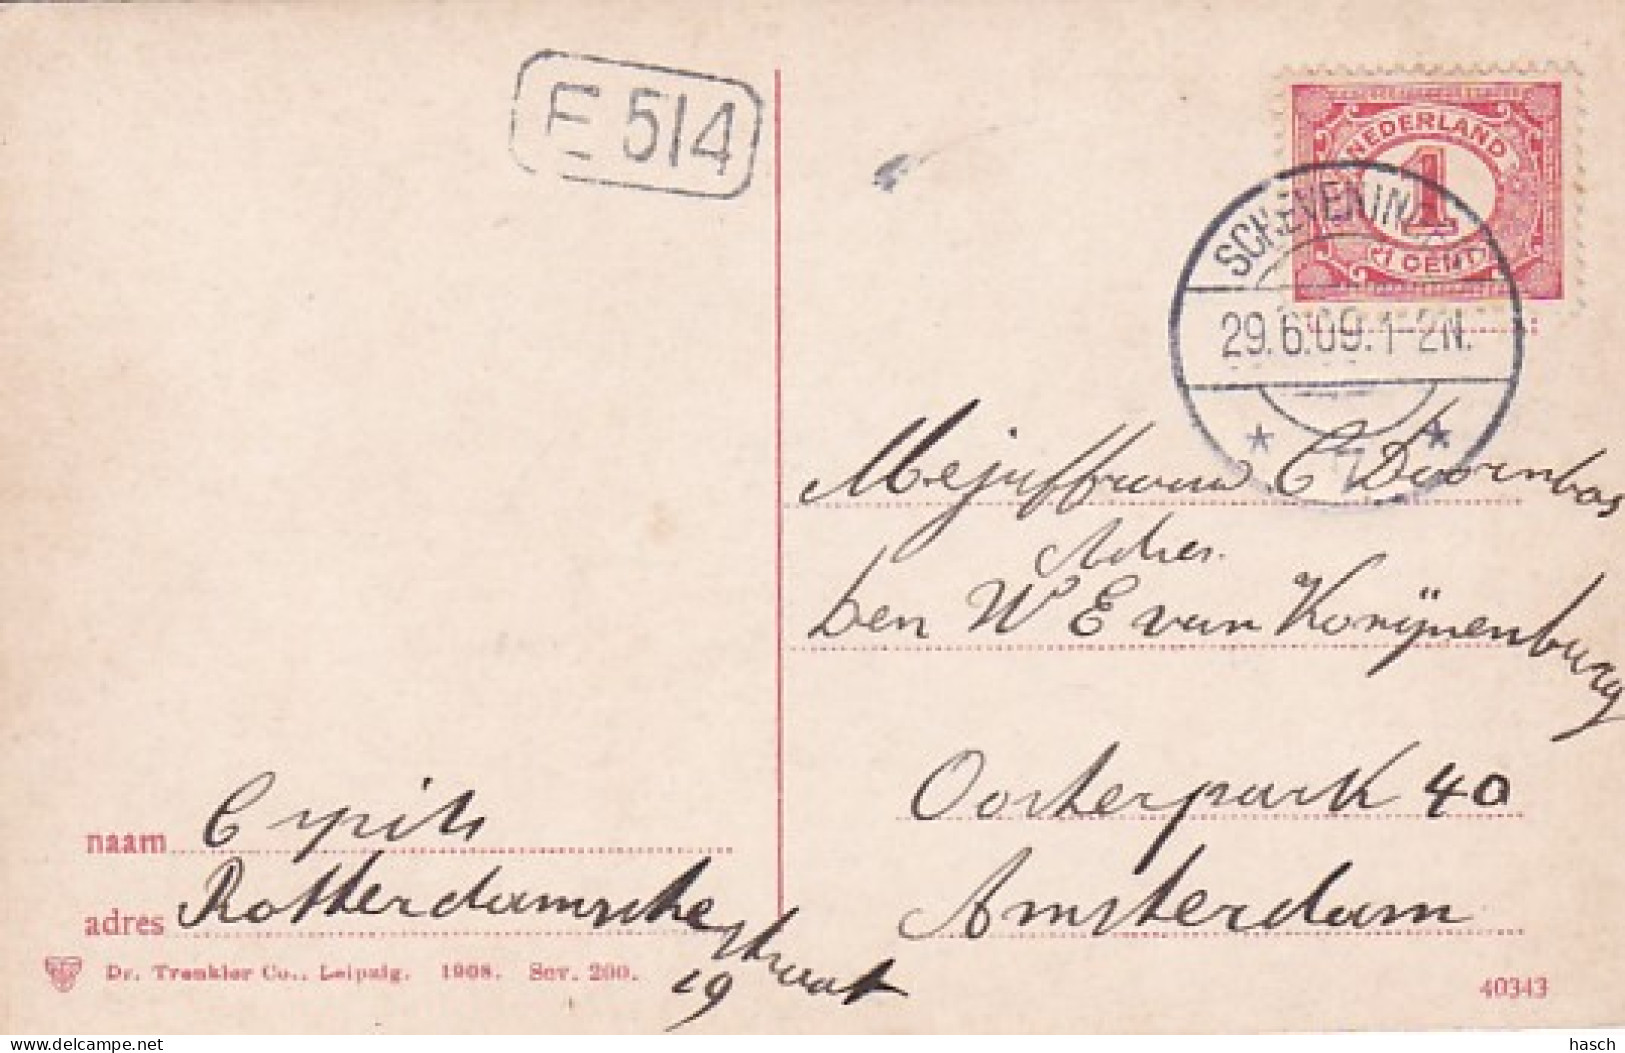 E 514
NEDERLAND
1
1 CENT
SCHEVENINGEN
29.6.09.1-2N.
Mejuffrouw C Doornbos
Adres.
Den W E van Konijnenburg
Oosterpark 40
Amsterdam
naam C
adres Rotterdamsche
straat
19
Dr. Trenkler Co., Leipzig. 1908. Scv. 200.
40343
delcampe.net
hasch